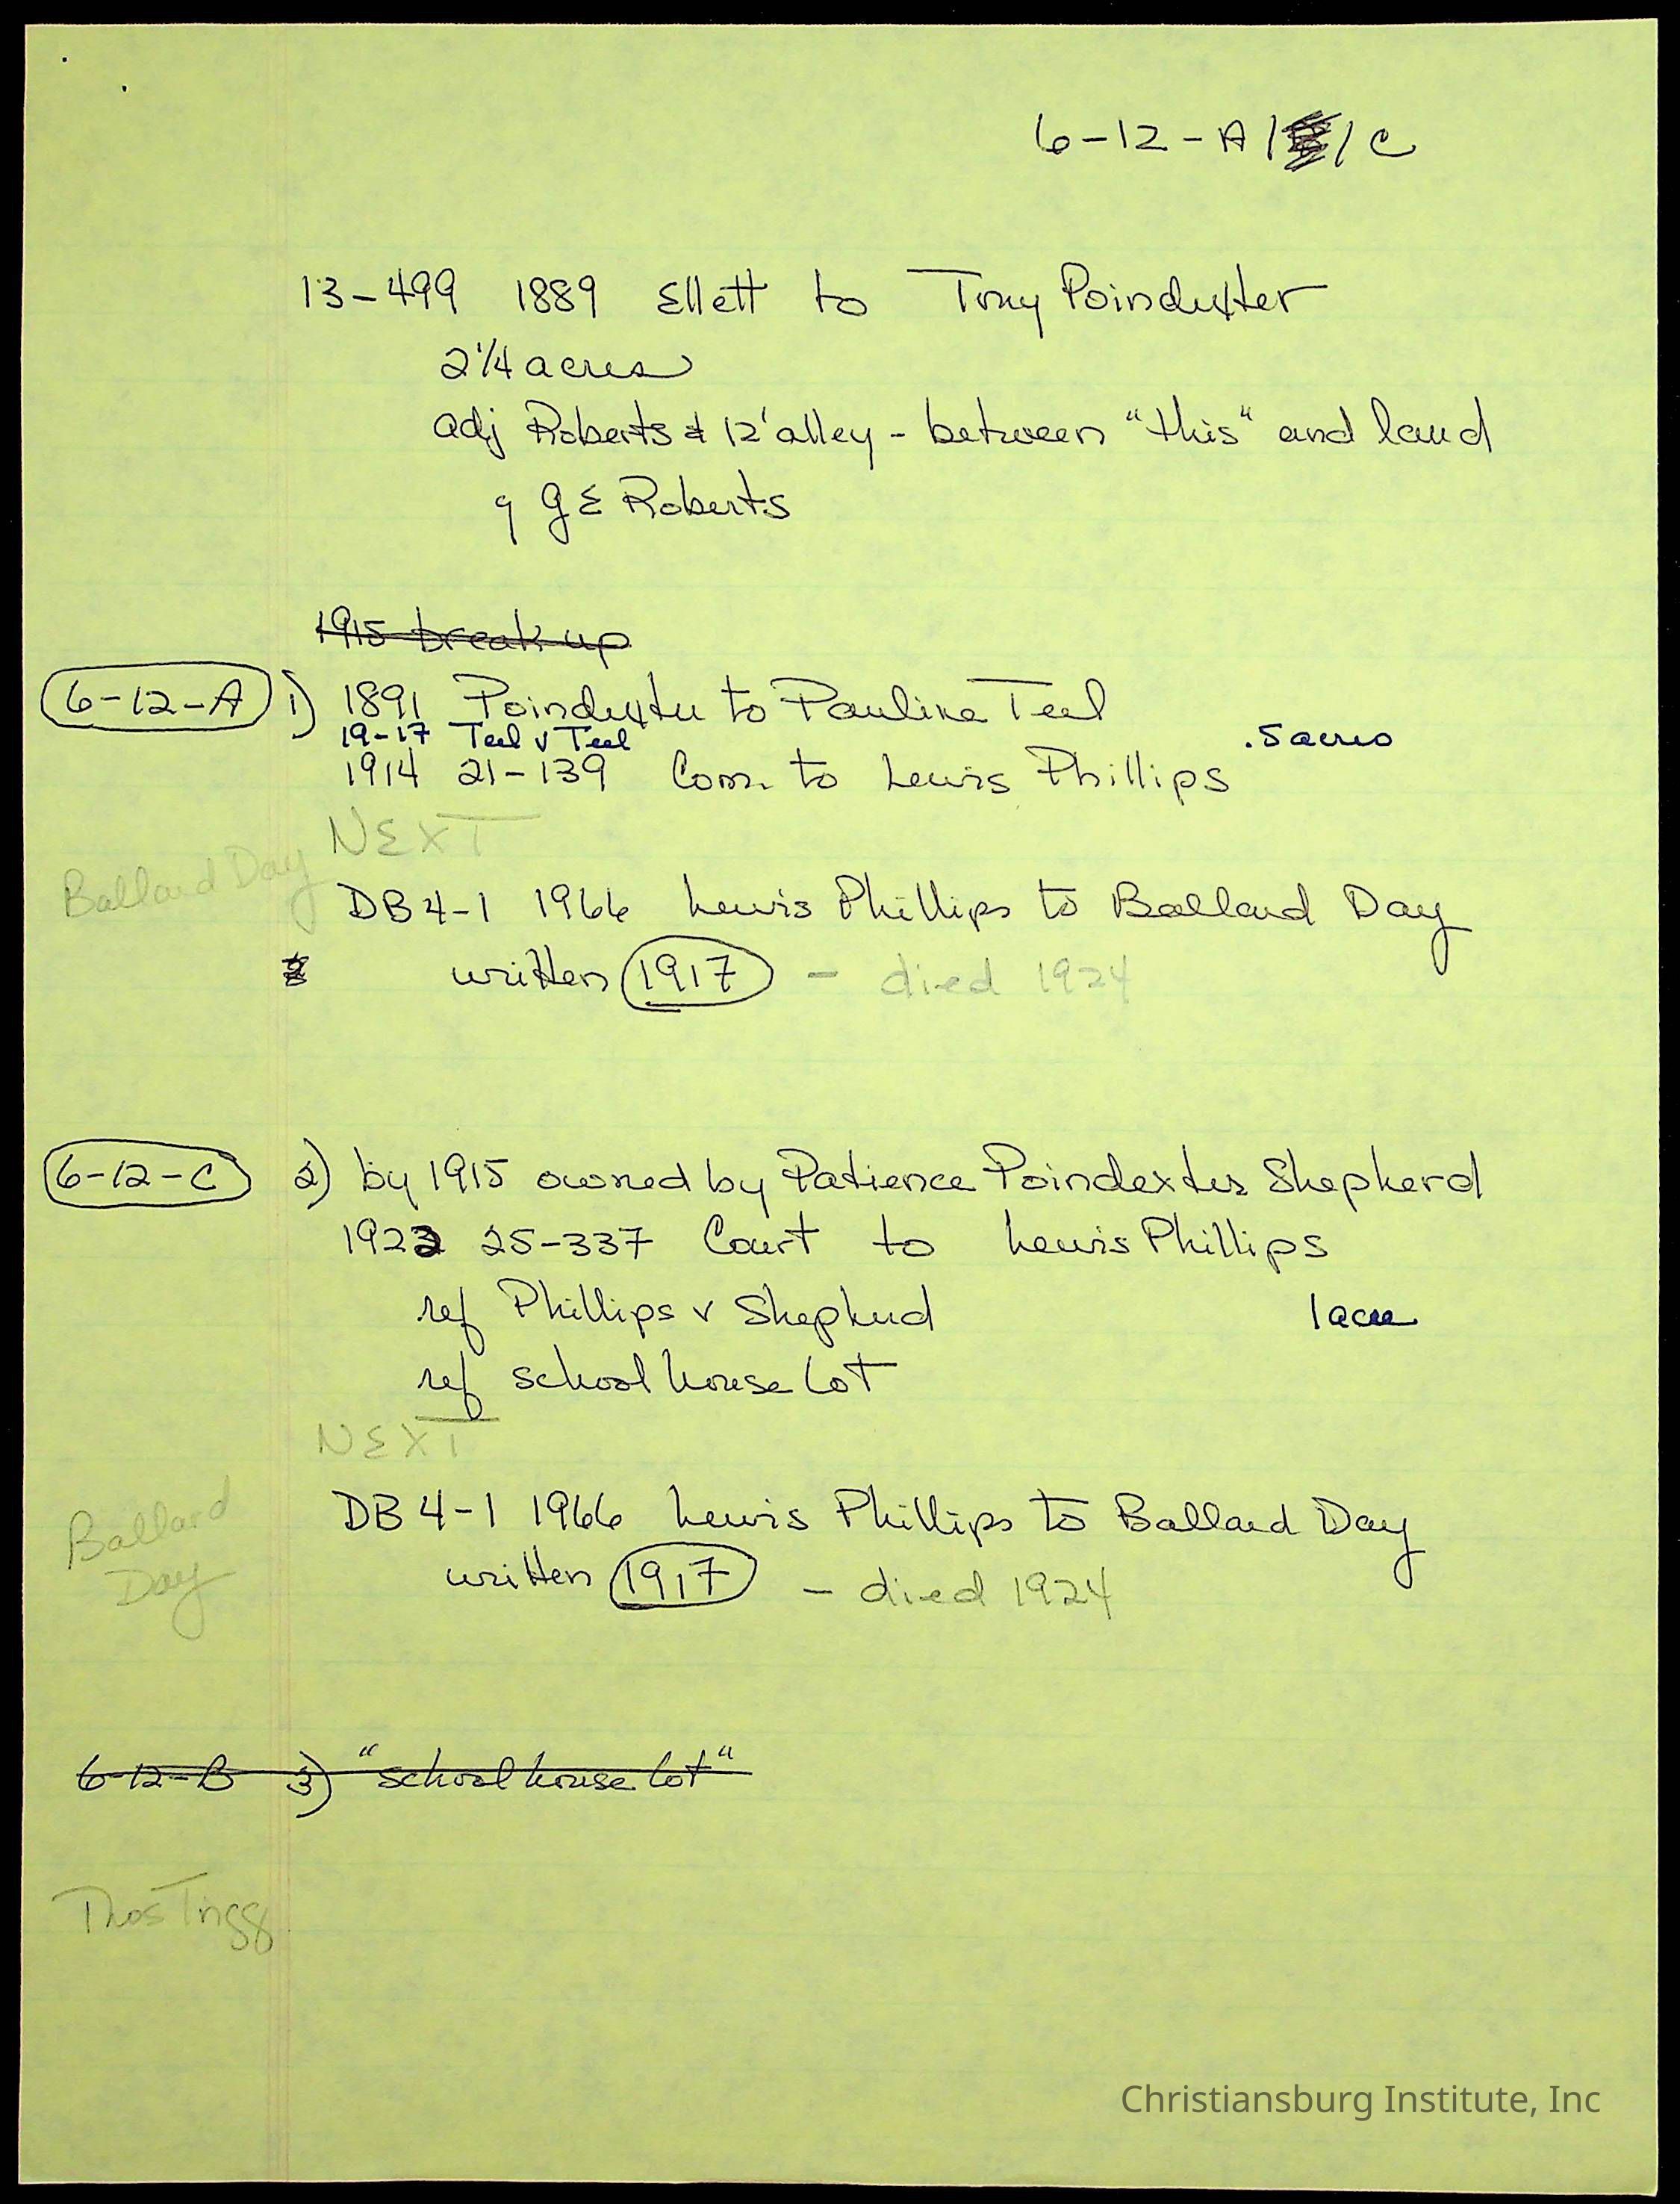 6-12-A / B / C
13-499 1889 Ellett to Tony Poindexter
2 1/4 acres
adj Roberts & 12' alley - between "this" and land
of G E Roberts
1915 break up
6-12-A 1) 1891 Poindexter to Pauline Teel
19-17 Teel v Teel .5 acres
1914 21-139 Com. to Lewis Phillips
NEXT
Ballard Day
DB 4-1 1966 Lewis Phillips to Ballard Day
written 1917 - died 1924
6-12-C 2) by 1915 owned by Patience Poindexter Shepherd
1922 25-337 Court to Lewis Phillips
ref Phillips v Shepherd 1 acre
ref school house lot
NEXT
Ballard
Day
DB 4-1 1966 Lewis Phillips to Ballard Day
written 1917 - died 1924
6-12-B 3) "school house lot"
Thos Trigg
Christiansburg Institute, Inc